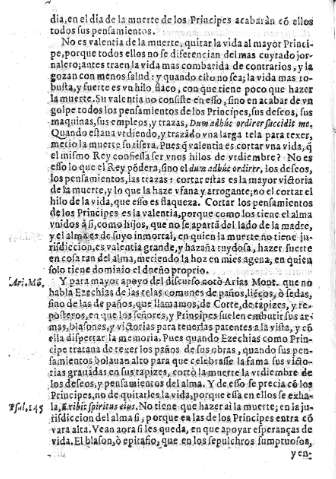 dia, en el dia de la muerte de los Principes acabarán cõ ellos
todos sus pensamientos.
No es valentia de la muerte, quitar la vida al mayor Princi-
pe, porque todos ellos no se diferencian del mas cuytado jor-
nalero; antes traen la vida mas combatida de contrarios, y la
gozan con menos salud: y quando esto no sea; la vida mas ro-
busta, y fuerte es vn hilo flaco, con que tiene poco que hazer
la muerte. Su valentia no consiste en esso, sino en acabar de vn
golpe todos los pensamientos de los Principes, sus deseos, sus
maquinas, sus empleos, y trazas, Dum adhuc ordirer succidit me.
Quando estaua vrdiendo, y trazãdo vna larga tela para texer,
metio la muerte su tisera. Pues q̃ valentia es cortar vna vida, q̃
el mismo Rey confiessa ser vnos hilos de vrdiembre? No es
esso lo que el Rey põdera, sino el dum adhuc ordirer, los deseos,
los pensamientos, las trazas: cortar estas es la mayor victoria
de la muerte, y lo que la haze vfana y arrogante; no el cortar el
hilo de la vida, que esso es flaqueza. Cortar los pensamientos
de los Principes es la valentia, porque como los tiene el alma
vnidos a si, como hijos, que no se apartã del lado de la madre,
y el alma es de suyo inmortal, en quien la muerte no tiene ju-
risdiccion, es valentia grande, y hazaña ruydosa, hazer suerte
en cosa tan del alma, metiendo la hoz en mies agena, en quien
solo tiene dominio el dueño proprio.
Ari. Mõ. Y para mayor apoyo del discurso notò Arias Mont. que no
habla Ezechias de las telas comunes de paños, lieços, ò sedas,
sino de las de paños, que llamamos, de Corte, de tapizes, y re-
posteros, en que los señores, y Principes suelen embutir sus ar-
mas, blasones, y victorias para tenerlas patentes a la vista, y cõ
ella dispertar la memoria. Pues quando Ezechias como Prin-
cipe trataua de texer los paños de sus obras, quando sus pen-
samientos bolauan alto para que celebrasse la fama sus vido-
rias grauadas en sus tapizes, cortò la muerte la vrdiembre de
los deseos, y pensamientos del alma. Y de esso se precia cõ los
Principes, no de quitarles la vida, porque essa en ellos se exha-
Psal. 145 la, Exibit spiritus eius. No tiene que hazer ai la muerte; en la ju-
risdiccion del alma si, porque en las de los Principes entra cõ
vara alta. Vean aora si les queda, en que apoyar esperanças de
vida. El blason, ò epitafio, que en los sepulchros sumptuosos,
y en-